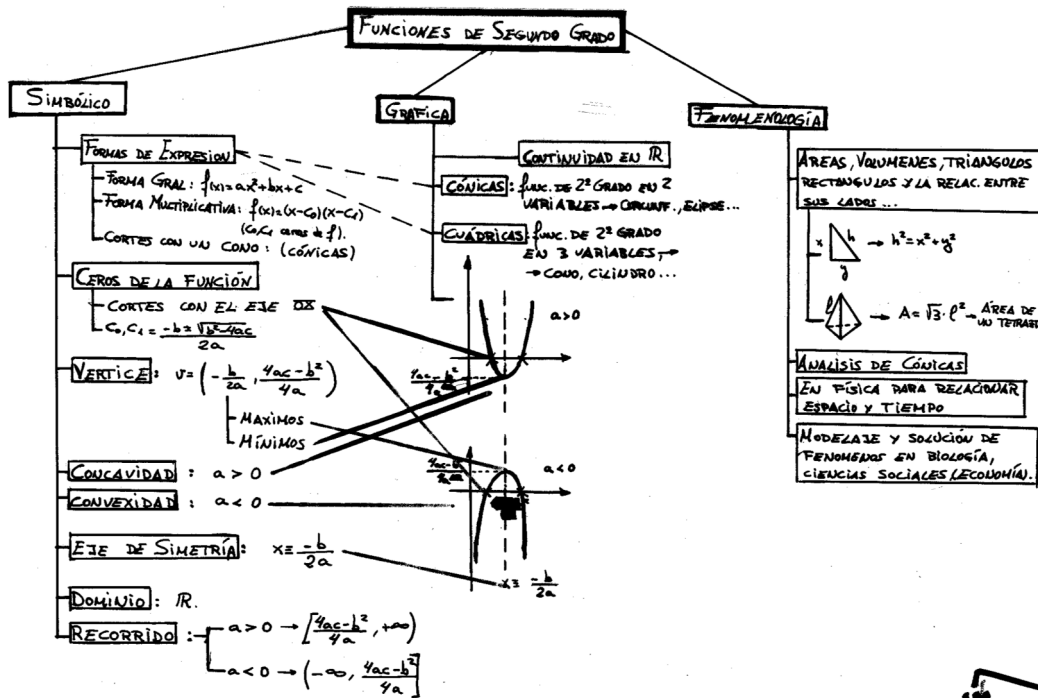 FUNCIONES DE SEGUNDO GRADO
SIMBÓLICO
FORMAS DE EXPRESION
FORMA GRAL: f(x)=ax²+bx+c
FORMA MULTIPLICATIVA: f(x)=(x-C₀)(x-C₁)
(C₀,C₁ ceros de f).
CORTES CON UN CONO: (CÓNICAS)
CEROS DE LA FUNCIÓN
CORTES CON EL EJE OX
C₀,C₁ = (-b±√(b²-4ac))/2a
VERTICE: v=(-b/2a, (4ac-b²)/4a)
MAXIMOS
MÍNIMOS
CONCAVIDAD: a>0
CONVEXIDAD: a<0
EJE DE SIMETRÍA: x≡-b/2a
DOMINIO: ℝ.
RECORRIDO:
a>0 → [(4ac-b²)/4a, +∞)
a<0 → (-∞, (4ac-b²)/4a]
GRAFICA
CONTINUIDAD EN ℝ
CÓNICAS: func. DE 2º GRADO EN 2
VARIABLES → CIRCUNF., ELIPSE...
CUÁDRICAS: func. DE 2º GRADO
EN 3 VARIABLES, →
→ CONO, CILINDRO...
a>0
(4ac-b²)/4a
a<0
x≡ -b/2a
FENOMENOLOGÍA
AREAS, VOLUMENES, TRIANGULOS
RECTANGULOS Y LA RELAC. ENTRE
SUS LADOS...
x h → h²=x²+y²
y
l → A=√3·l² → ÁREA DE
UN TETRAE
ANALISIS DE CÓNICAS
EN FÍSICA PARA RELACIONAR
ESPACIO Y TIEMPO
MODELAJE Y SOLUCIÓN DE
FENOMENOS EN BIOLOGÍA,
CIENCIAS SOCIALES (ECONOMÍA.